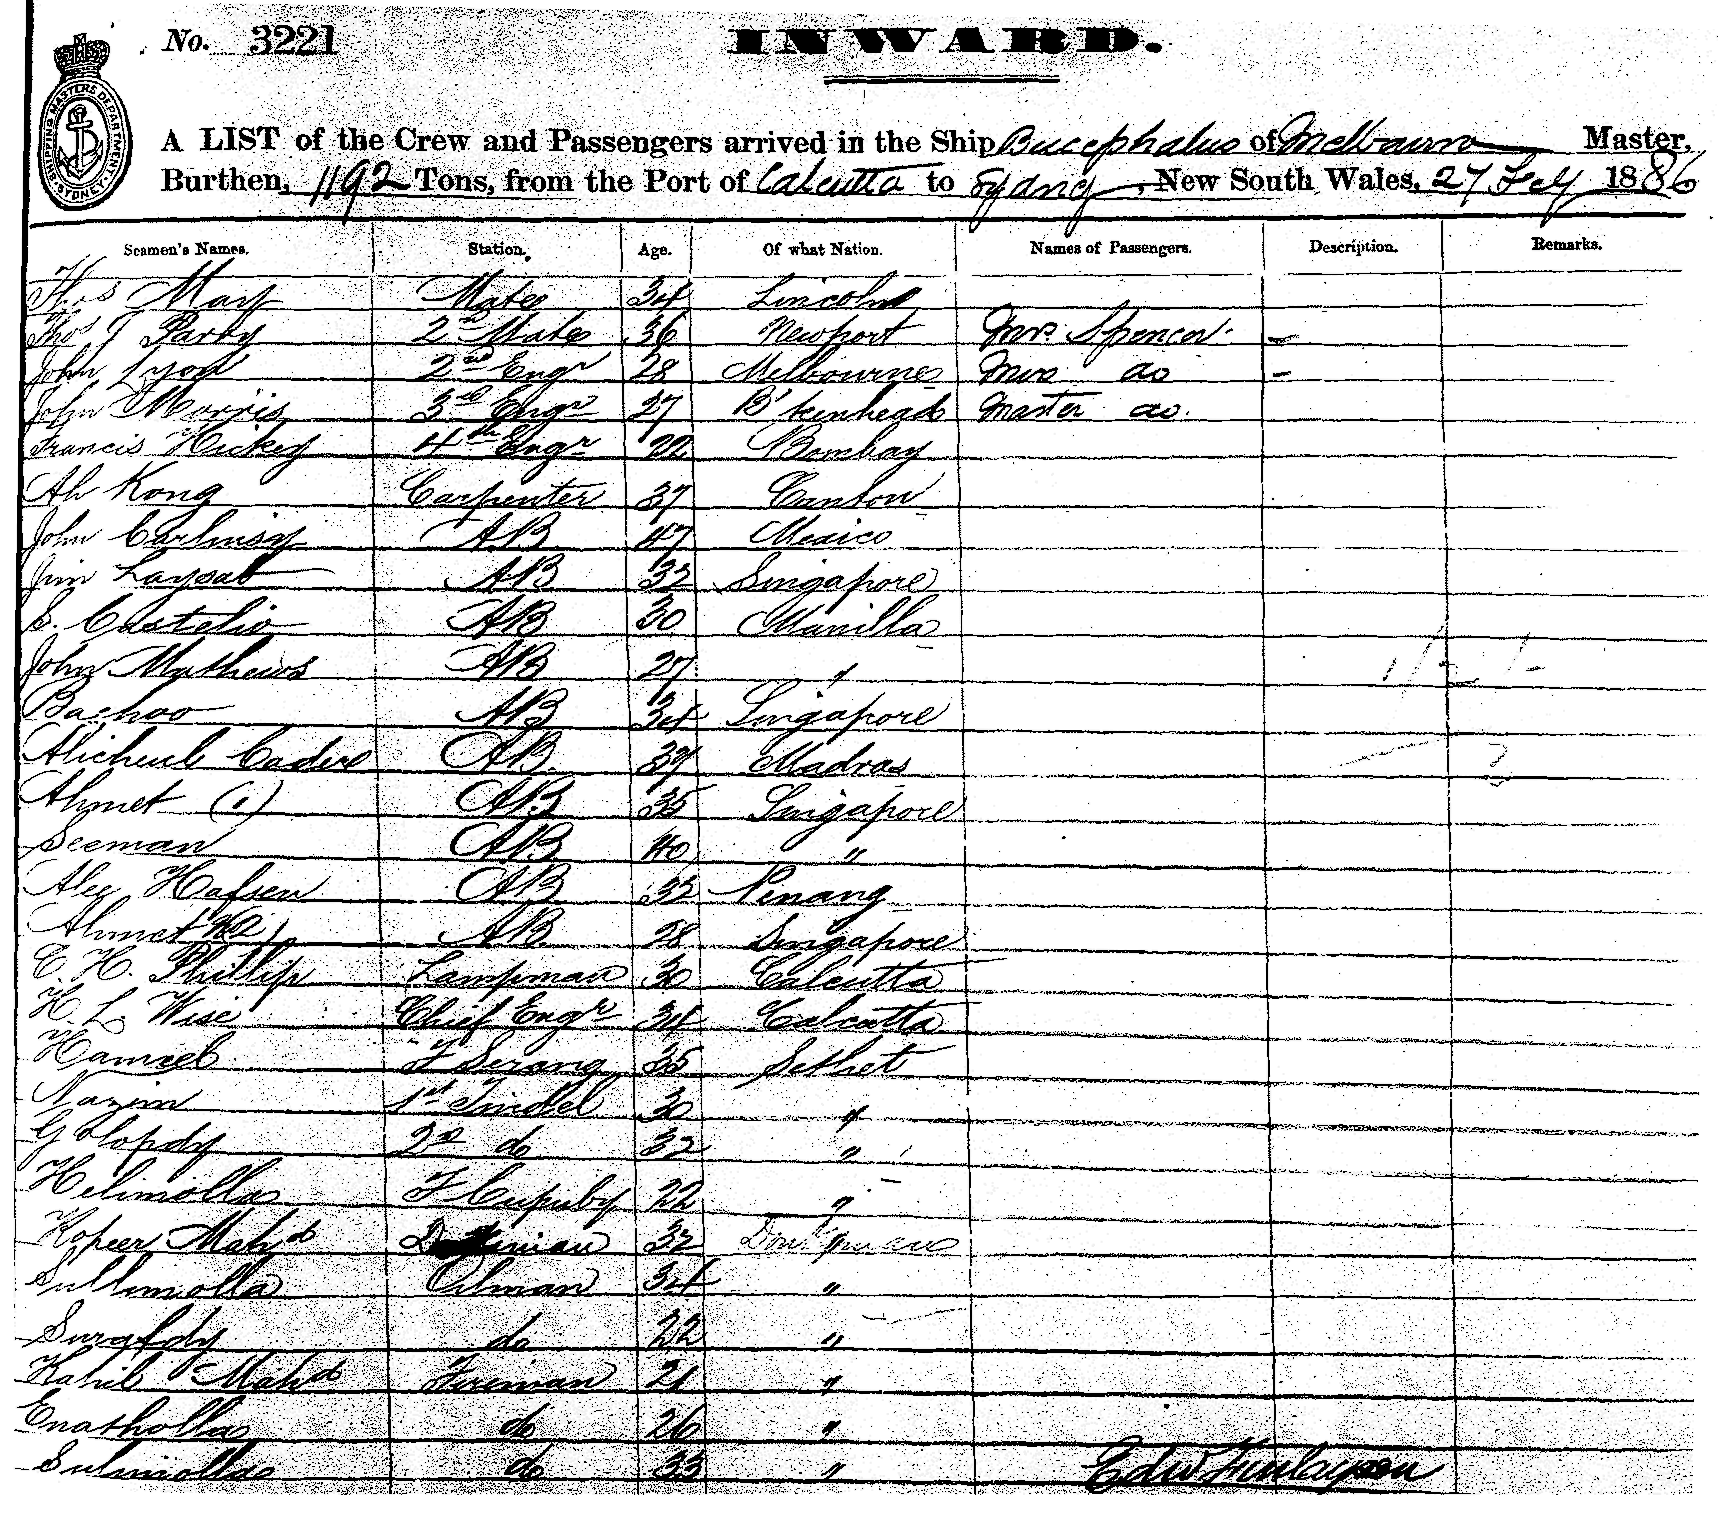 No. 3221
INWARD.
SHIPPING MASTERS DEPARTMENT SYDNEY
A LIST of the Crew and Passengers arrived in the Ship Bucephalus of Melbourn Master,
Burthen, 1192 Tons, from the Port of Calcutta to Sydney, New South Wales, 27 Feby 1886
Seamen's Names. Station. Age. Of what Nation. Names of Passengers. Description. Remarks.
Thos May Mate 34 Lincoln
Thos J Parry 2nd Mate 36 Newport Mrs Spencer -
John Lyod 2nd Engr 28 Melbourne Miss do -
John Morris 3rd Engr 27 B'kenhead Master do.
Francis Hickey 4th Engr 22 Bombay
Ah Kong Carpenter 37 Canton
John AB 47 Mexico
Jim Laysat AB 32 Singapore
S. Castelio AB 30 Manilla
John Mathews AB 27 "
Bachoo AB 34 Singapore
Cader AB 39 Madras
Ahmet (1) AB 35 Singapore
Seeman AB 40 "
Alee AB 32 Pinang
Ahmet AB 28 Singapore
C. H. Phillip Lampman 30 Calcutta
H. L. Wise Chief Engr 34 Calcutta
F Serang 35 Sethet
Nazim 1st Tindel 30 "
2nd do 32 "
Helimolla F 22 "
Kopeer Mahd 32
Sullimolla Oilman 34 "
do 22 "
Mahd Fireman 21 "
Enatholla do 26 "
Sulimolla do 33 "
Edw Finlayson